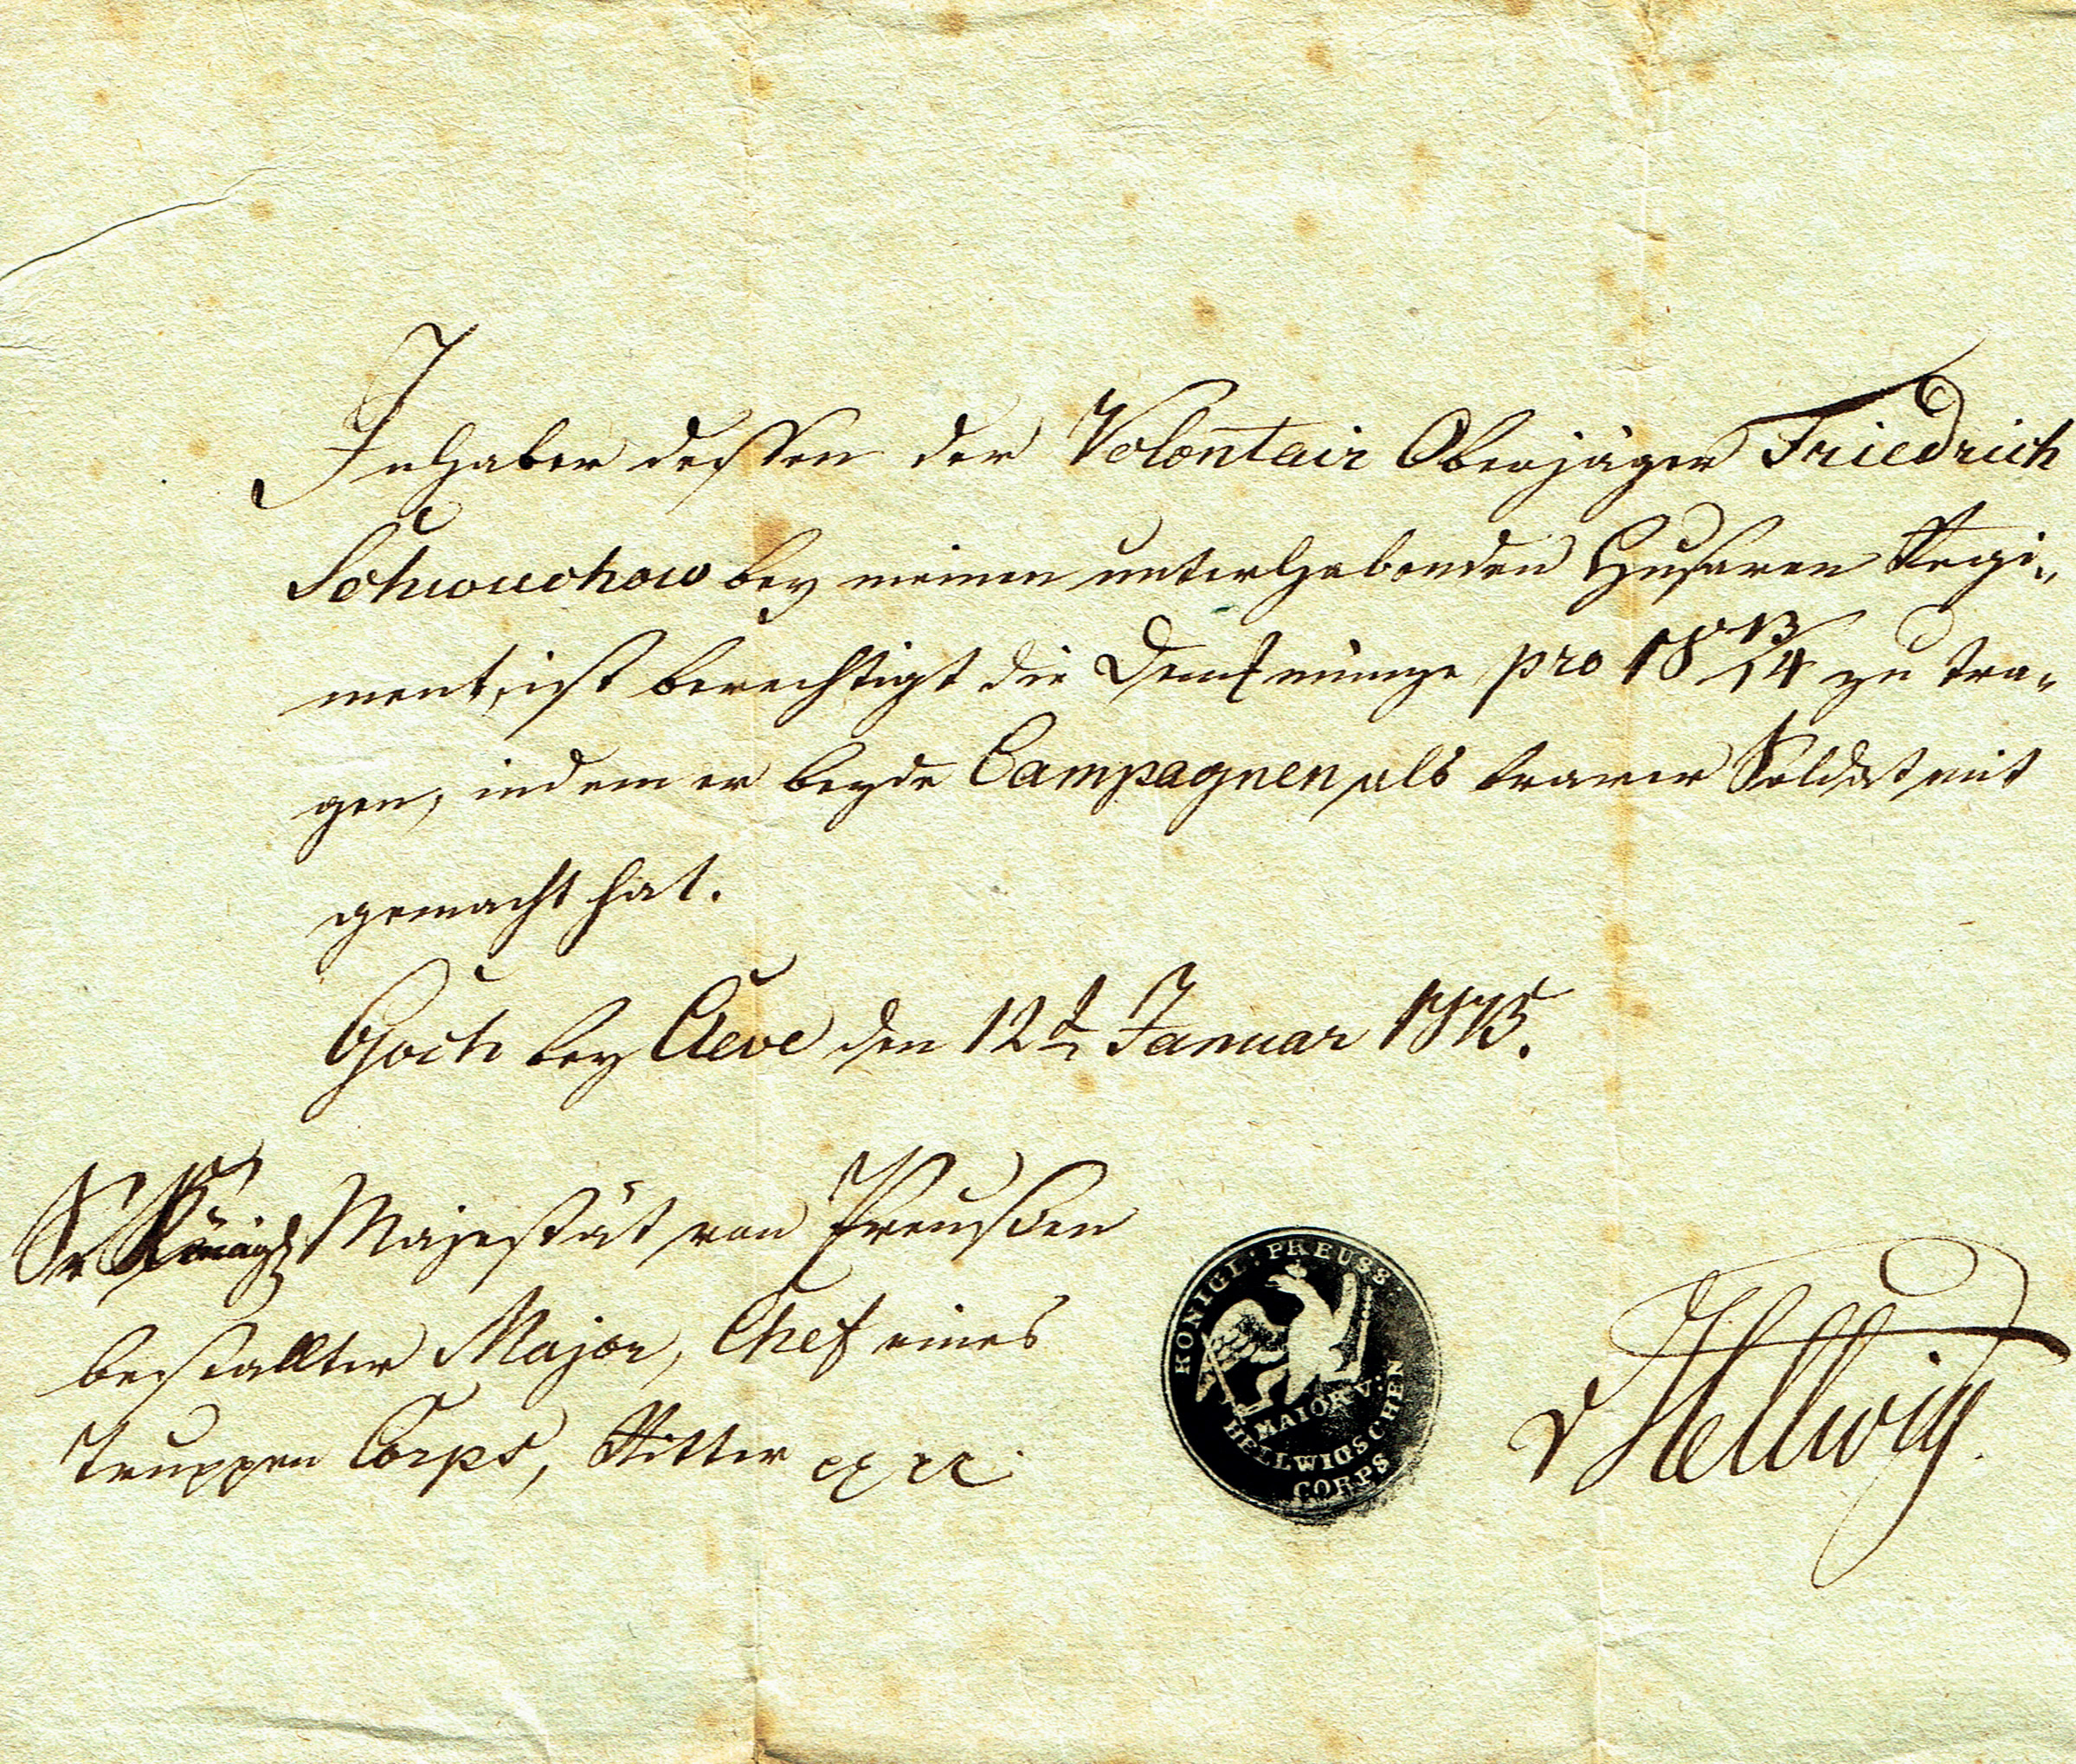 Inhaber dessen der Volontair Oberjäger Friedrich
Schwuchow bey meinen unterhabenden Husaren Regi„
ment, ist berechtigt die Denkmünze pro 18 13/14 zu tra„
gen, indem er beyde Campagnen als braver Soldat mit
gemacht hat.
Goch bey Cleve den 12t Januar 1815.
Sr Königl Majestät von Preußen
bestallter Major, Chef eines
Truppen Corps, Ritter pp
KÖNIGL: PREUSS:
MAIOR V:
HELLWIGSCHEN
CORPS
v Hellwig.